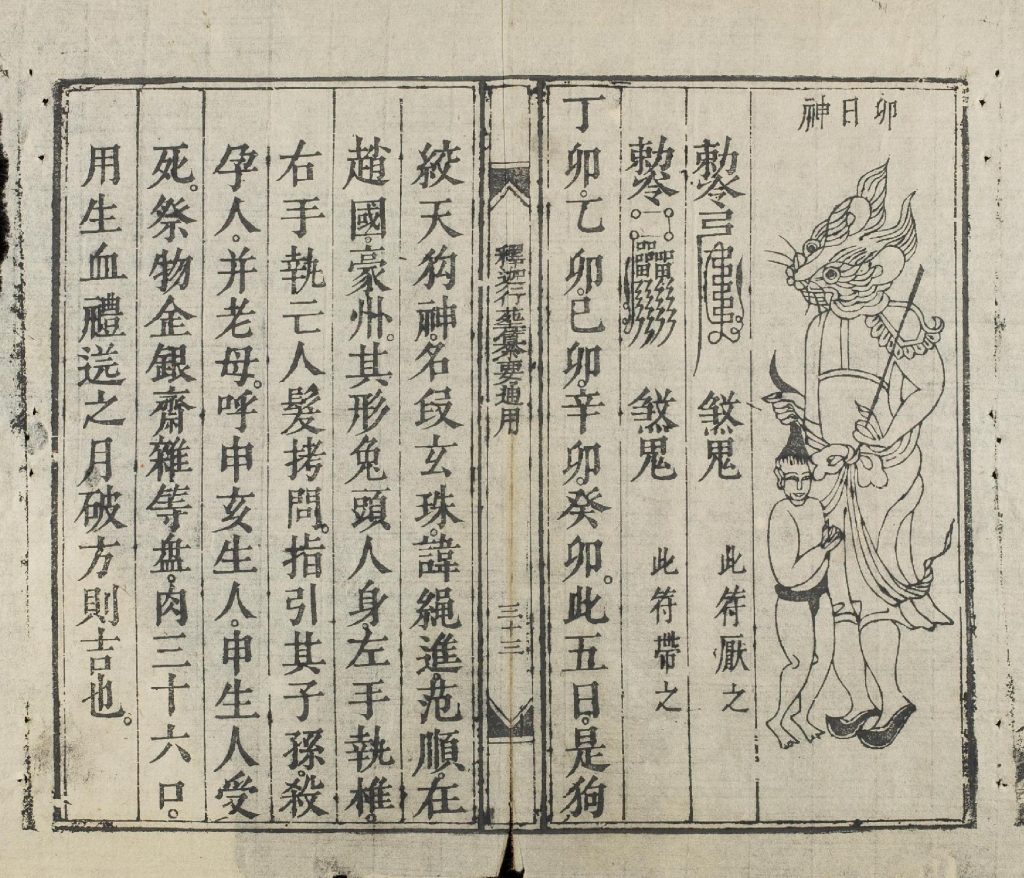 卯日神
勅令 煞鬼 此符厭之
勅令 煞鬼 此符帶之
丁卯。乙卯。己卯。辛卯。癸卯。此五日。是狗
釋迦行 纂要通用 三十三
絞天狗神。名段玄珠。諱繩進范順。在
趙國。豪州。其形兔頭人身。左手執椎。
右手執亡人髮拷問。指引其子孫。殺
孕人。并老母。呼申亥生人。申生人受
死。祭物金銀齋雜等盘。肉三十六口。
用生血禮送之月破方則吉也。